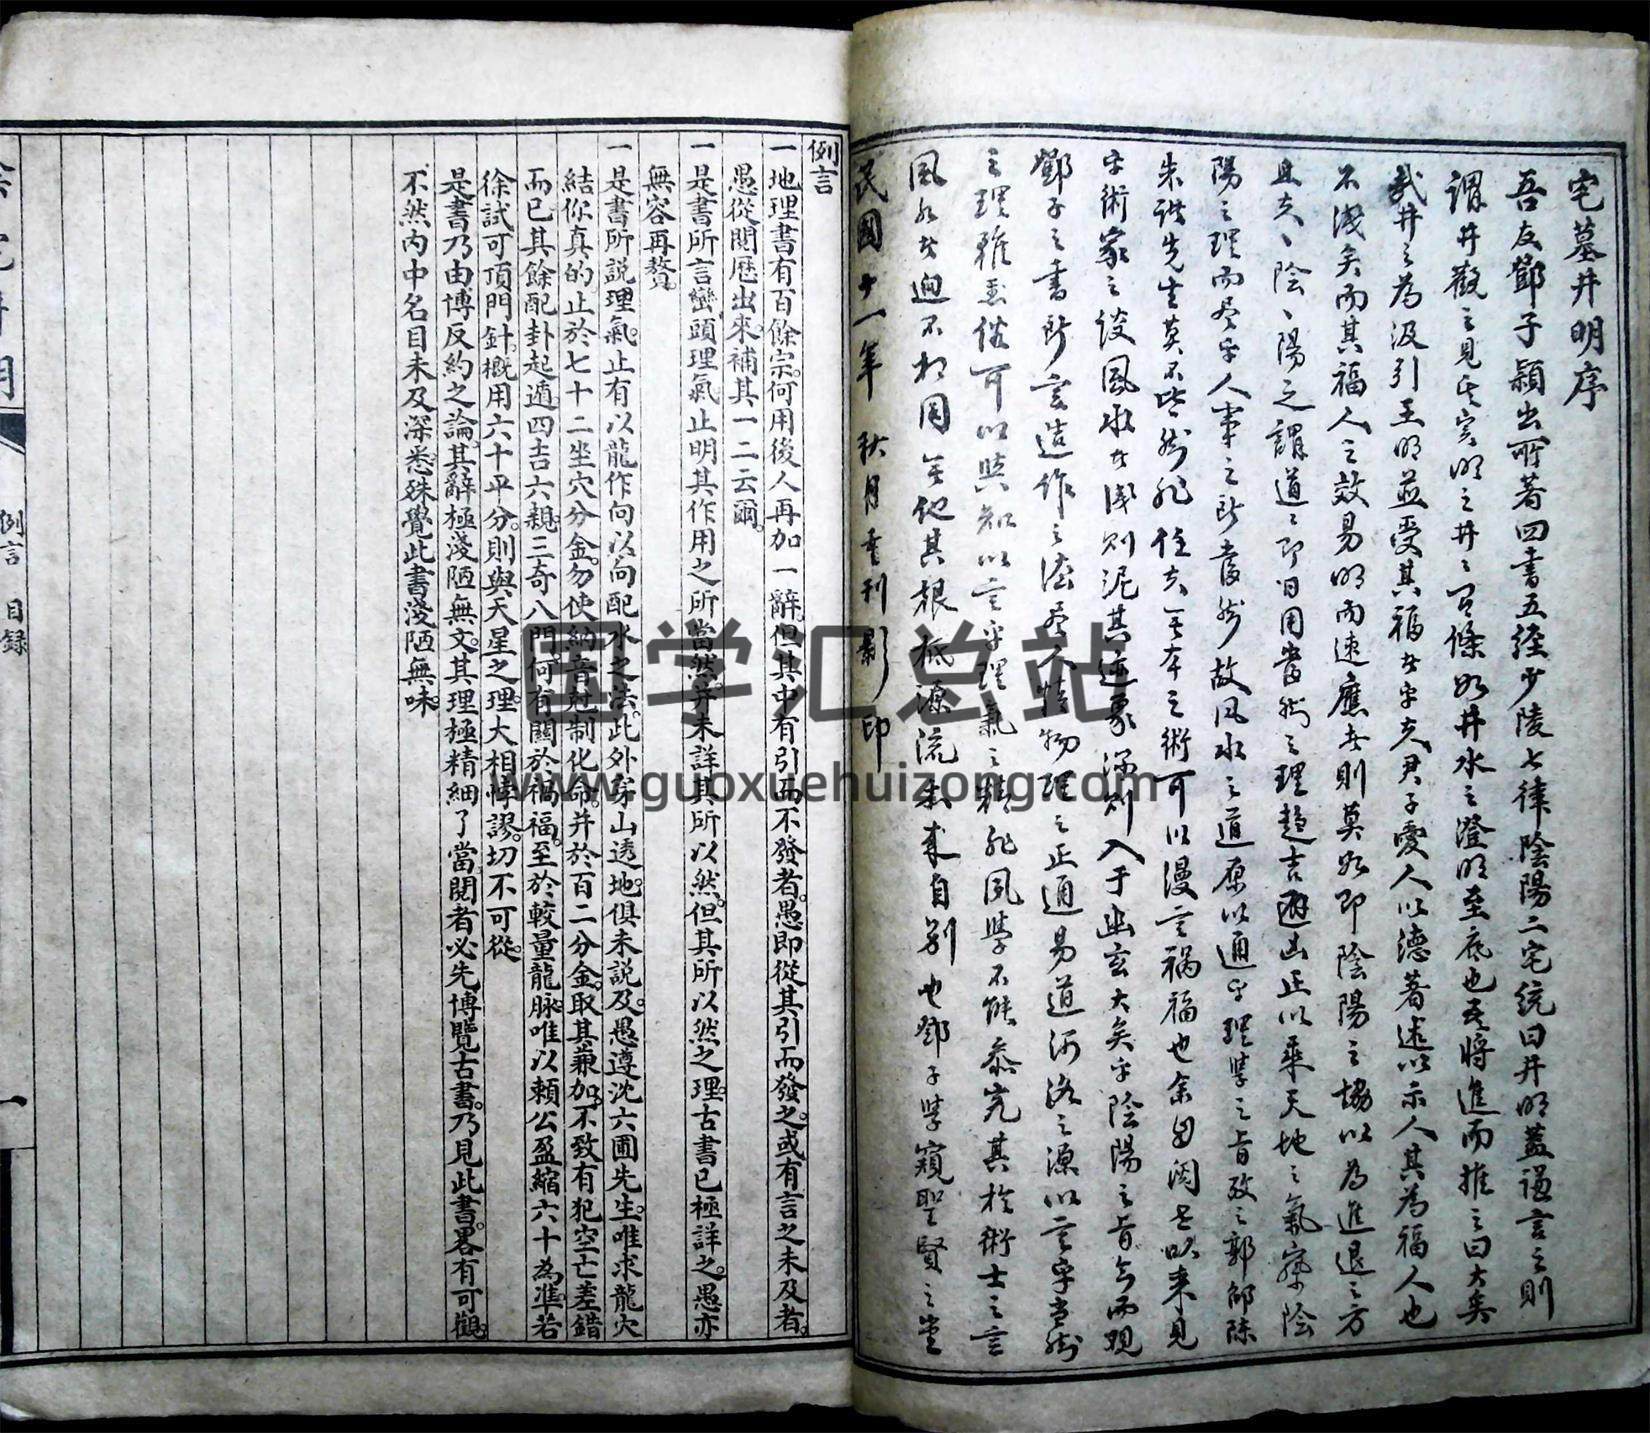 宅墓井明序
吾友鄧子穎出所著四書五經少陵七律陰陽二宅統曰井明蓋謙言之則
謂井觀之見其實明之井井有條如井水之澄明至底也吾將進而推之曰大矣
哉井之為汲引王明並受其福者乎夫君子愛人以德著述以示人其為福人也
不淺矣而其福人之效易明而速應者則莫如即陰陽之協以為進退之方
且夫一陰一陽之謂道道即日用當然之理趨吉避凶正以乘天地之氣察陰
陽之理而盡乎人事之所當然故風水之道原以通乎理學之旨攷之郭邵陳
朱諸先生莫不皆然非住夫無本之術可以漫言禍福也余因閱書以來見
乎術家之談風水者淺則泥其迹象深則入于幽玄大失乎陰陽之旨今而觀
鄧子之書所言造作之法盡人情物理之正通易道河洛之源以言乎當然
之理雖愚俗可以與知以言乎理氣之精非夙學不能參究其於術士之言
風水者迥不相同無他其根柢源流本來自別也鄧子學窺聖賢之堂
民國十一年 秋月重刊影印
例言
一地理書有百餘宗何用後人再加一辭但其中有引而不發者愚即從其引而發之或有言之未及者
愚從閱歷出來補其一二云爾
一是書所言巒頭理氣止明其作用之所當然并未詳其所以然但其所以然之理古書已極詳之愚亦
無容再贅
一是書所説理氣止有以龍作向以向配水之法此外穿山透地俱未説及愚遵沈六圃先生唯求龍穴
結作真的止於七十二坐穴分金勿使納音尅制化命并於百二分金取其兼加不致有犯空亡差錯
而已其餘配卦起遁四吉六親三奇八門何有關於禍福至於較量龍脉唯以賴公盈縮六十為準若
徐試可頂門針概用六十平分則與天星之理大相悖謬切不可從
是書乃由博反約之論其辭極淺陋無文其理極精細了當閱者必先博覽古書乃見此書畧有可觀
不然內中名目未及深悉殊覺此書淺陋無味
例言 目録
一
国学汇总站
www.guoxuehuizong.com